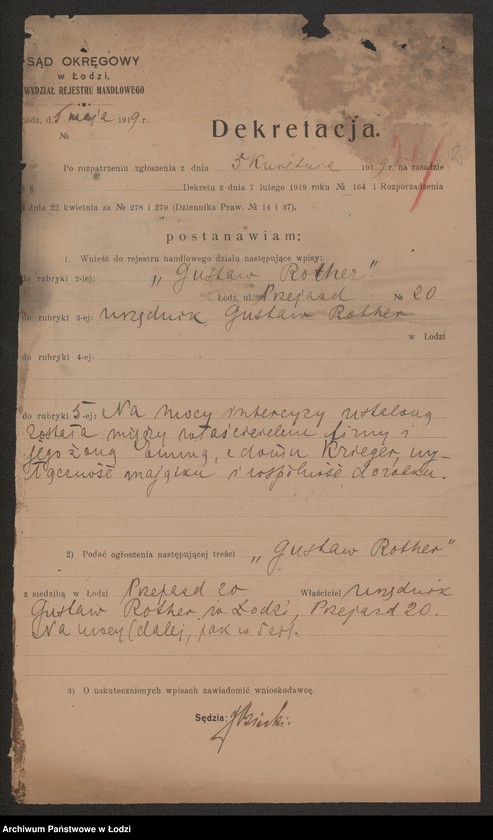 SĄD OKRĘGOWY
w Łodzi.
WYDZIAŁ REJESTRU HANDLOWEGO
Łódz, d. 5 maja 1919 r.
№
Dekretacja.
Po rozpatrzeniu zgłoszenia z dnia 5 Kwietnia 1919 r. na zasadzie
§ § Dekretu z dnia 7 lutego 1919 roku № 164 i Rozporządzenia
z dnia 22 kwietnia za № 278 i 279 (Dziennika Praw. № 14 i 37),
postanawiam:
1. Wnieść do rejestru handlowego działu następujące wpisy:
do rubryki 2-iej: „Gustaw Rother”
Łódz, ul. Przejazd № 20
do rubryki 3-ej: urzędnik Gustaw Rother
w Łodzi
do rubryki 4-ej:
do rubryki 5-ej: Na mocy intercyzy ustaloną
została między właścicielem firmy i
jego żoną Emmą, z domu Krieger, wy-
łączność majątku i wspólność dorobku.
2) Podać ogłoszenia następującej treści „Gustaw Rother”
z siedzibą w Łodzi Przejazd 20 Właściciel urzędnik
Gustaw Rother, w Łodzi, Przejazd 20.
Na mocy (dalej, jak w 5 er).
3) O uskutecznionych wpisach zawiadomić wnioskodawcę.
Sędzia:
Archiwum Państwowe w Łodzi